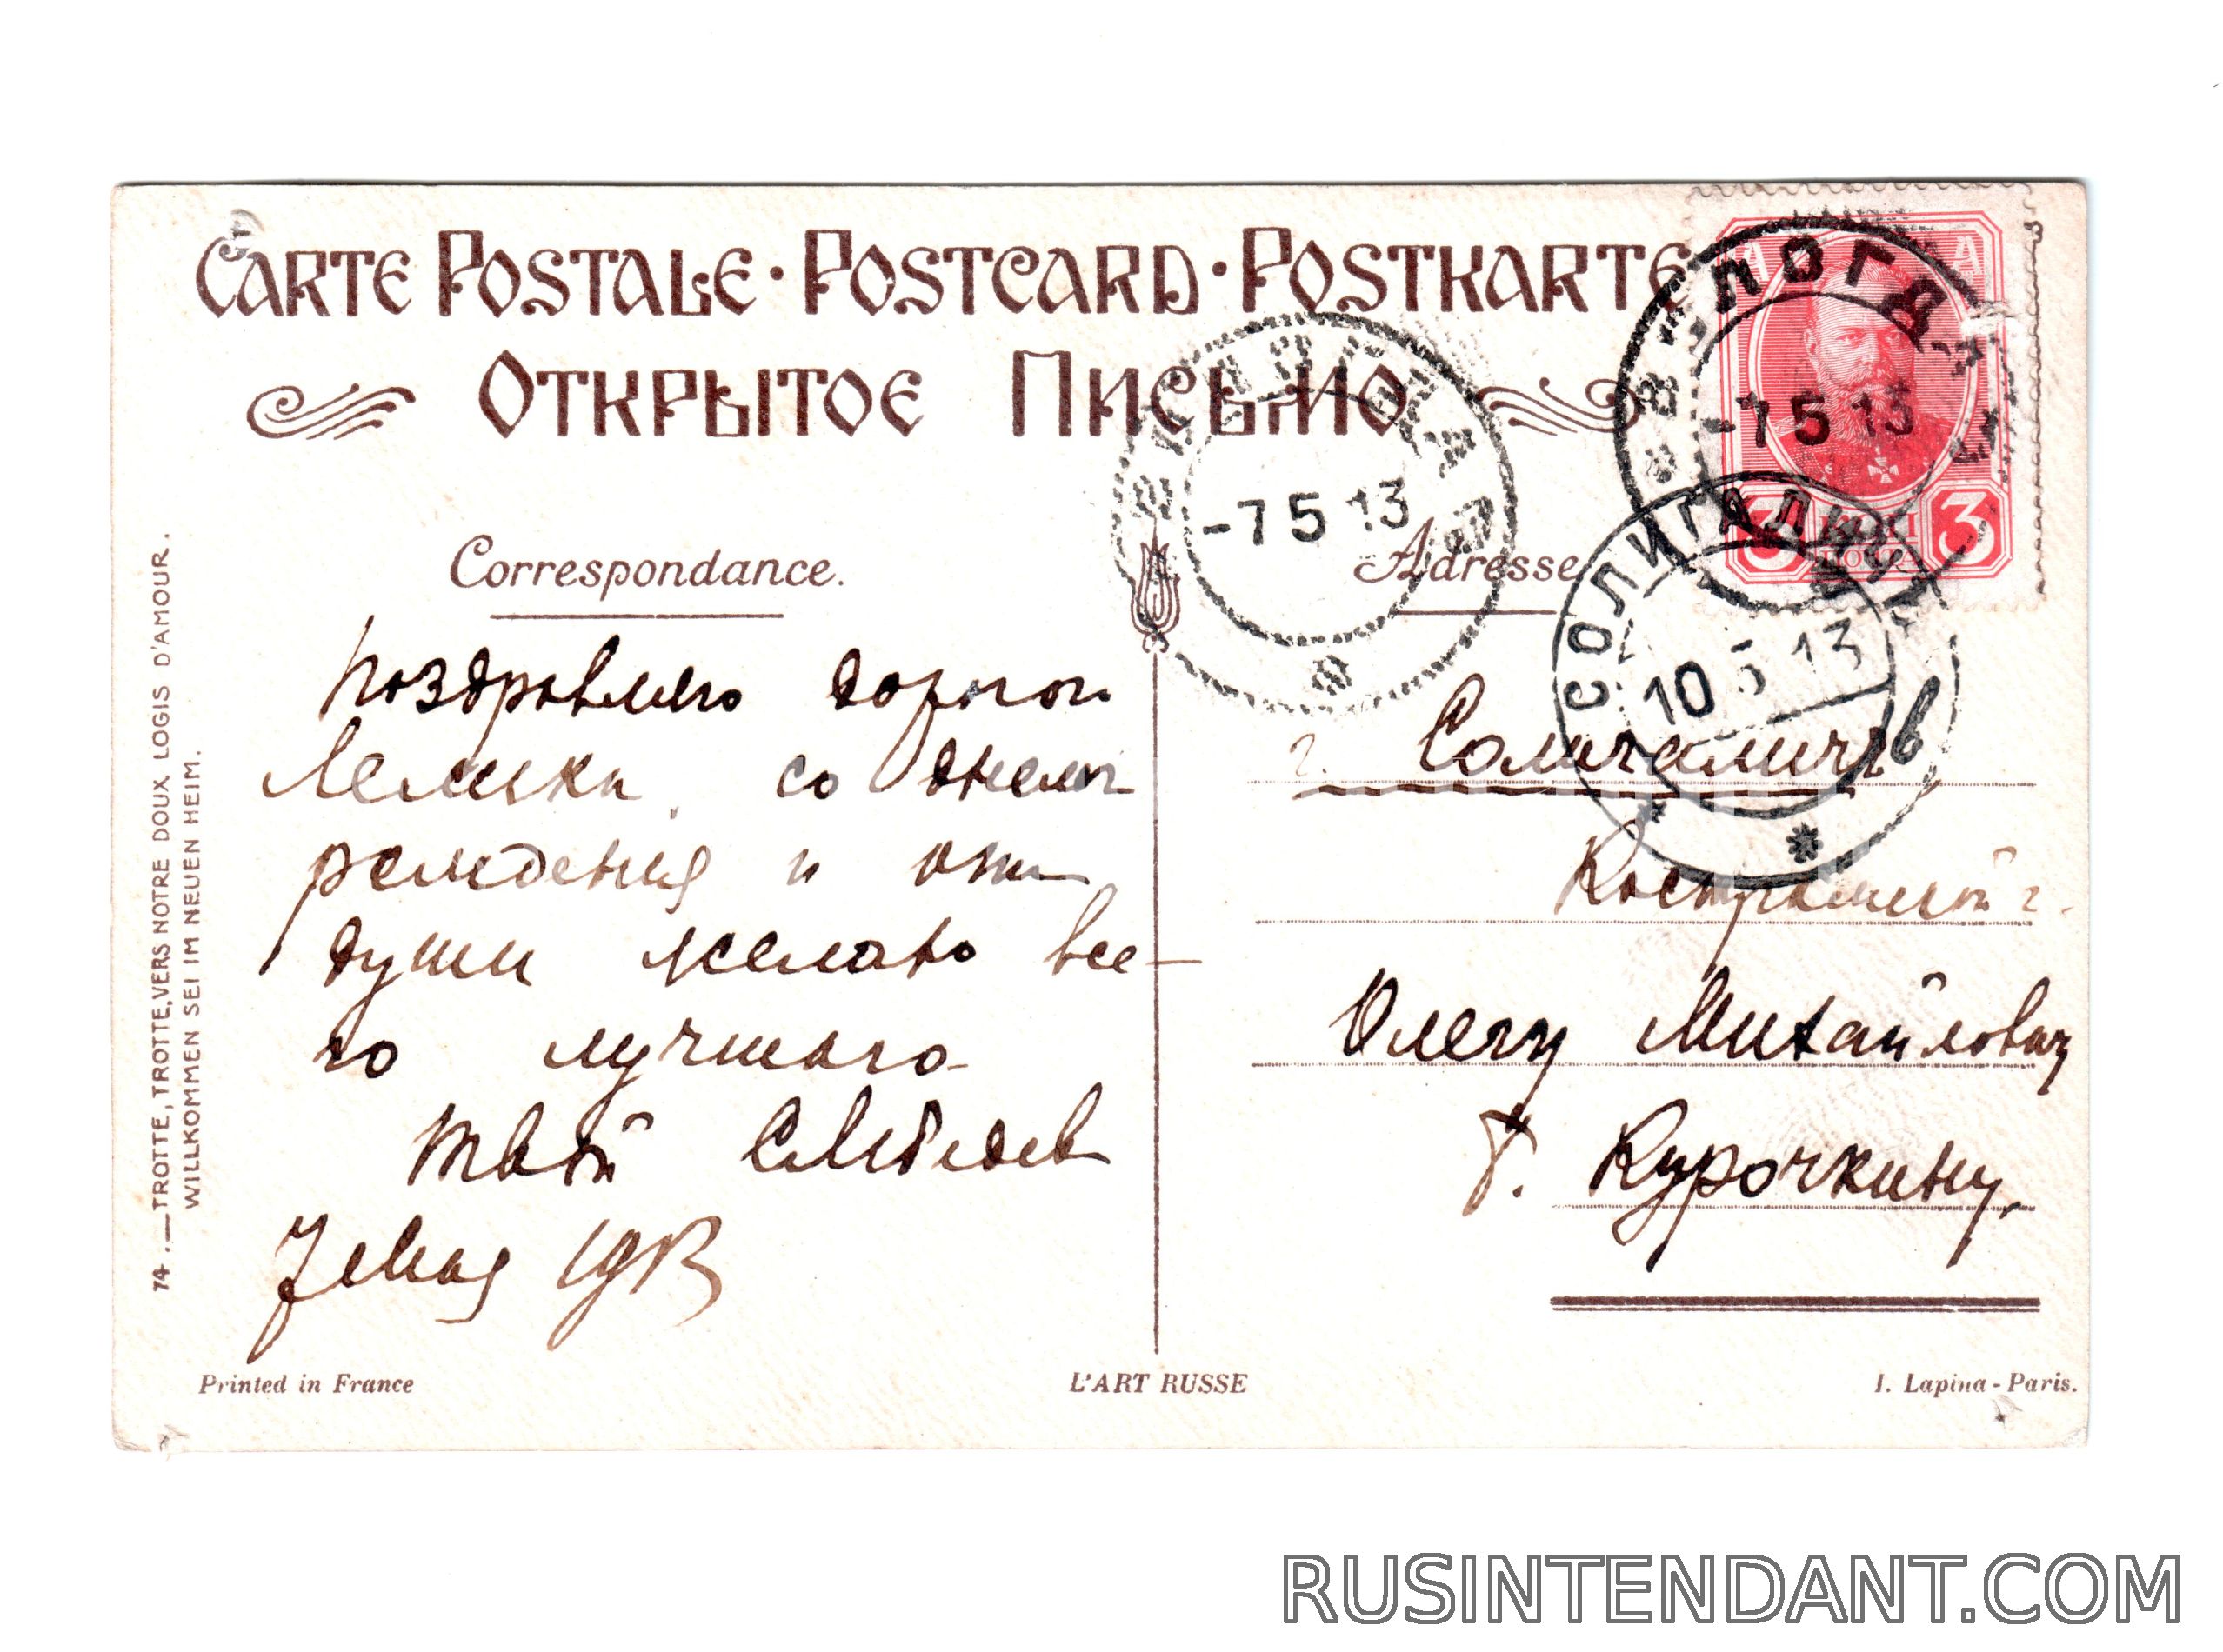 CARTE POSTALE · POSTCARD · POSTKARTE
ОТКРЫТОЕ ПИСЬМО
ВОЛОГДА
-7 5 13
-7 5 13
3 КОП 3
СОЛИГАЛИЧ
10 5 13
Correspondance.
Adresse
Поздравляю дорогой
со днем
рождения и от
души желаю все-
го лучшего
твой
г. Солигаличъ
Костромской г.
Олегу Михайловичу
Г. Курочкину.
74.—TROTTE, TROTTE, VERS NOTRE DOUX LOGIS D'AMOUR.
WILLKOMMEN SEI IM NEUEN HEIM.
Printed in France
L'ART RUSSE
I. Lapina - Paris.
RUSINTENDANT.COM